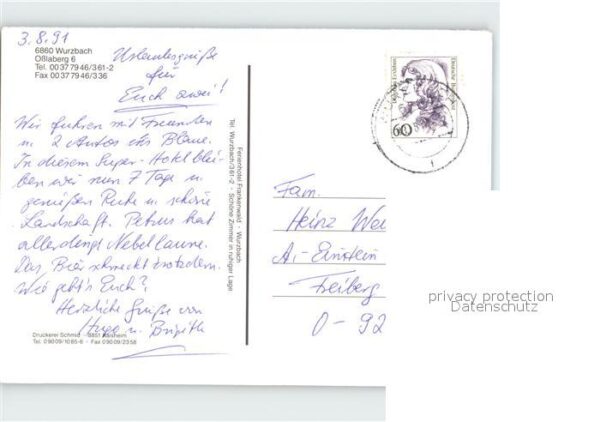 3.8.91
6860 Wurzbach
Oßlaberg 6
Tel. 00 37 79 46/3 61-2
Fax 00 37 79 46/3 36
Urlaubsgrüße
für
Euch zwei!
Wir fuhren mit Freunden
in 2 Autos ins Blaue.
In diesem Super-Hotel blei-
ben wir nun 7 Tage u.
genießen Ruhe u. schöne
Landschaft. Petrus hat
allerdings Nebellaune.
Das Bier schmeckt trotzdem.
Wie geht's Euch?
Herzliche Grüße von
Hugo u. Brigitte
Druckerei Schmid
Tel. 0 90 09/10 85-6 · Fax 0 90 09/23 58
Ferienhotel Frankenwald · Wurzbach
Tel. Wurzbach/361-2 · Schöne Zimmer in ruhiger Lage
60
Deutsche Bundespost
Fam.
Heinz Wei
A.-Einstein
Freiberg
O-92
privacy protection
Datenschutz